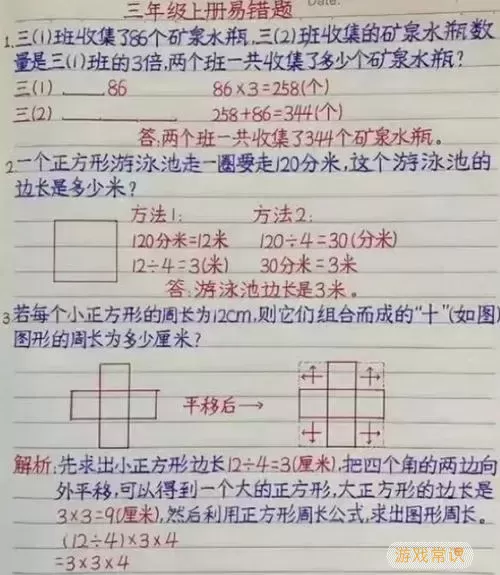 三年级上册易错题
Date:
1.三(1)班收集了86个矿泉水瓶,三(2)班收集的矿泉水瓶数
量是三(1)班的3倍,两个班一共收集了多少个矿泉水瓶?
三(1) 86 86×3=258(个)
三(2) 258+86=344(个)
答:两个班一共收集了344个矿泉水瓶。
2.一个正方形游泳池走一圈要走120分米,这个游泳池的
边长是多少米?
方法1: 方法2:
120分米=12米 120÷4=30(分米)
12÷4=3(米) 30分米=3米
答:游泳池边长是3米。
3.若每个小正方形的周长为12cm,则它们组合而成的“十”(如图)
图形的周长为多少厘米?
平移后→
解析:先求出小正方形边长12÷4=3(厘米),把四个角的两边向
外平移,可以得到一个大的正方形,大正方形的边长是
3×3=9(厘米),然后利用正方形周长公式,求出图形周长。
(12÷4)×3×4
=3×3×4
游戏常识